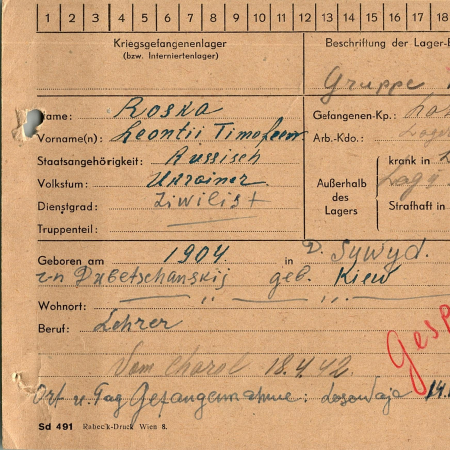 1 2 3 4 5 6 7 8 9 10 11 12 13 14 15 16 17 18
Kriegsgefangenenlager
(bzw. Interniertenlager)
Beschriftung der Lager-
Gruppe
Name: Roska
Vorname(n): Leontii Timofeew
Staatsangehörigkeit: Russisch
Volkstum: Ukrainer
Dienstgrad: Ziwilist
Truppenteil:
Gefangenen-Kp.:
Arb.-Kdo.:
Außerhalb
des
Lagers
krank in
Strafhaft in
Geboren am 1904 in D. Sywyd.
r-n geb. Kiew
Wohnort: " "
Beruf: Lehrer
Vom Charol 18.4.42
Gesp
Ort u. Tag Gefangennahme: 14.
Sd 491 Raheck-Druck Wien 8.